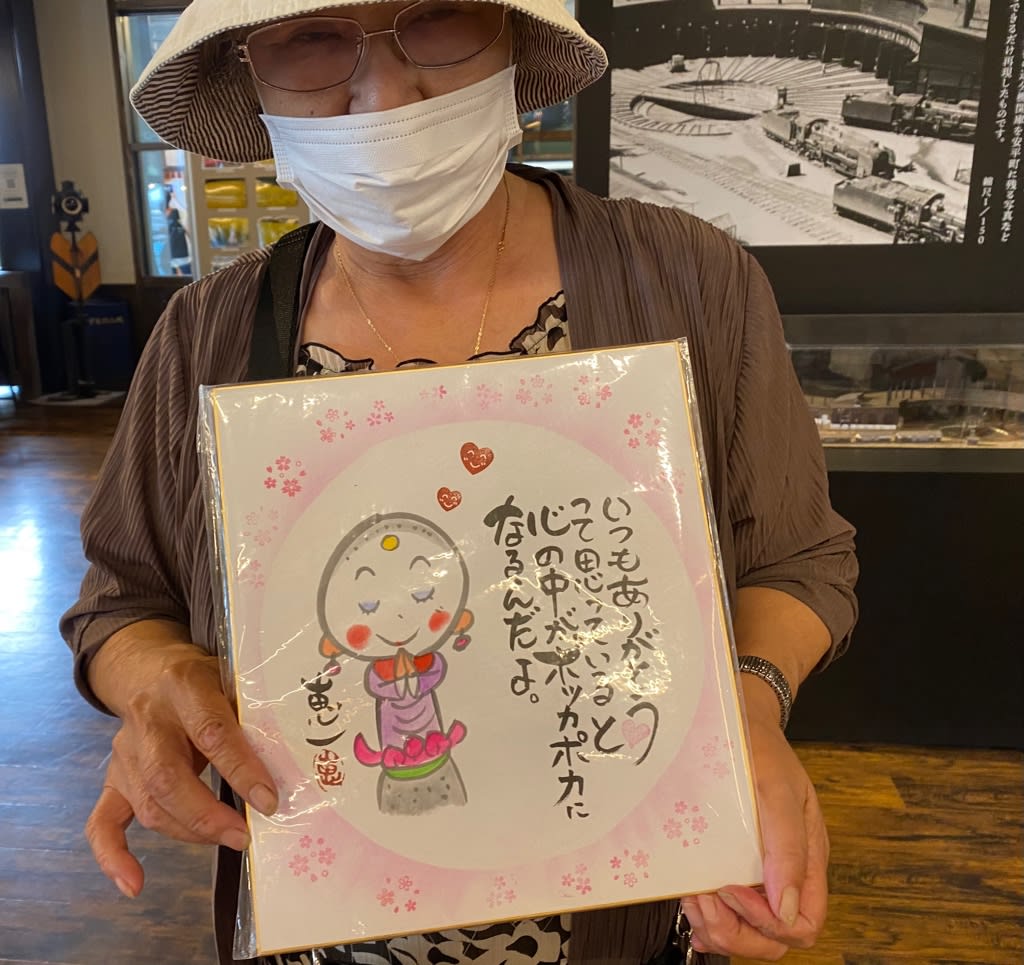 いつもありがとう
って思っていると
心の中がポッカポカに
なるんだよ。
恵一
できるだけ再現したものです。
縮尺1/150